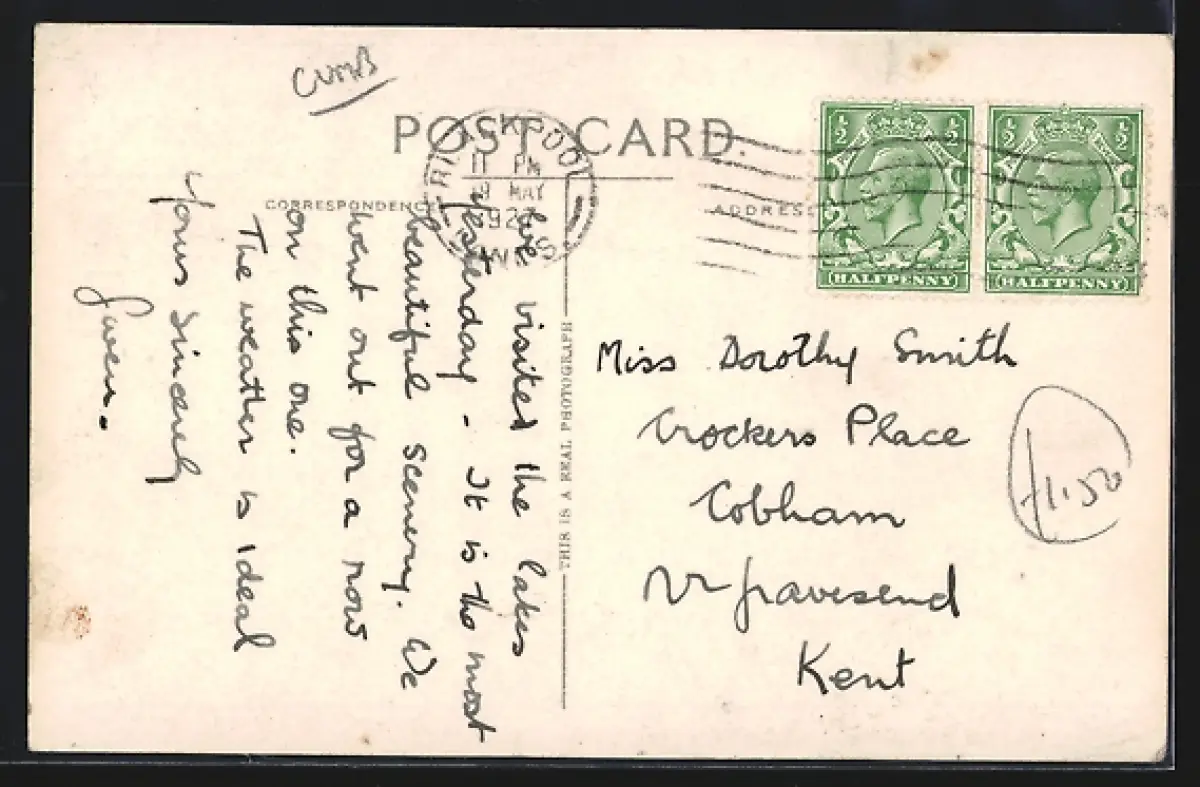 CUMB
POST CARD.
CORRESPONDENCE
ADDRESS
BLACKPOOL
11 PM
19 MAY
192
½ ½
HALFPENNY
½ ½
HALFPENNY
We visited the lakes
yesterday - It is the most
beautiful scenery. We
went out for a row
on this one.
The weather is ideal
Yours Sincerely
Gwen.
THIS IS A REAL PHOTOGRAPH
Miss Dorothy Smith
Crockers Place
Cobham
Nr Gravesend
Kent
£1.50